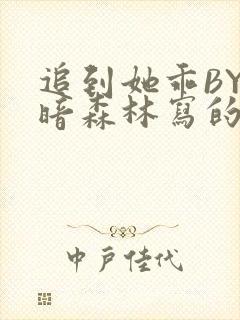 追到她乖BY
暗森林寫的
中戶佳代